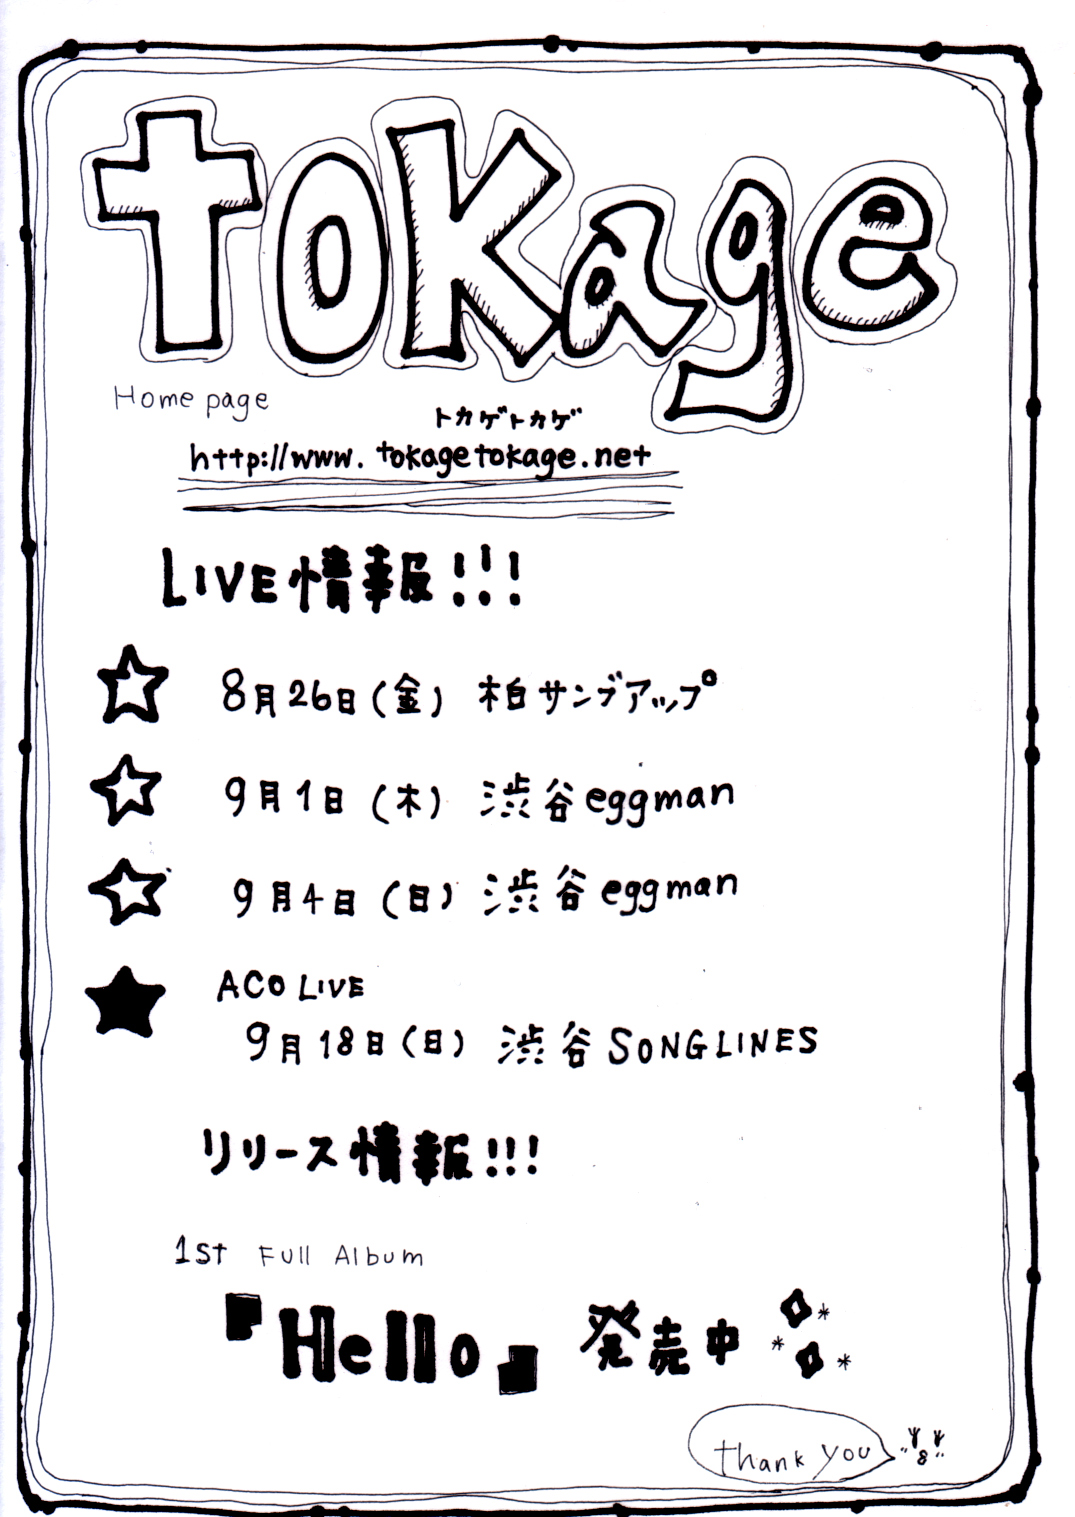 tokage
Home page
トカゲトカゲ
http://www.tokagetokage.net
LIVE情報!!!
8月26日(金) 柏サンブアップ
9月1日(木) 渋谷eggman
9月4日(日) 渋谷eggman
ACO LIVE
9月18日(日) 渋谷SONGLINES
リリース情報!!!
1st Full Album
『Hello』 発売中
thank you